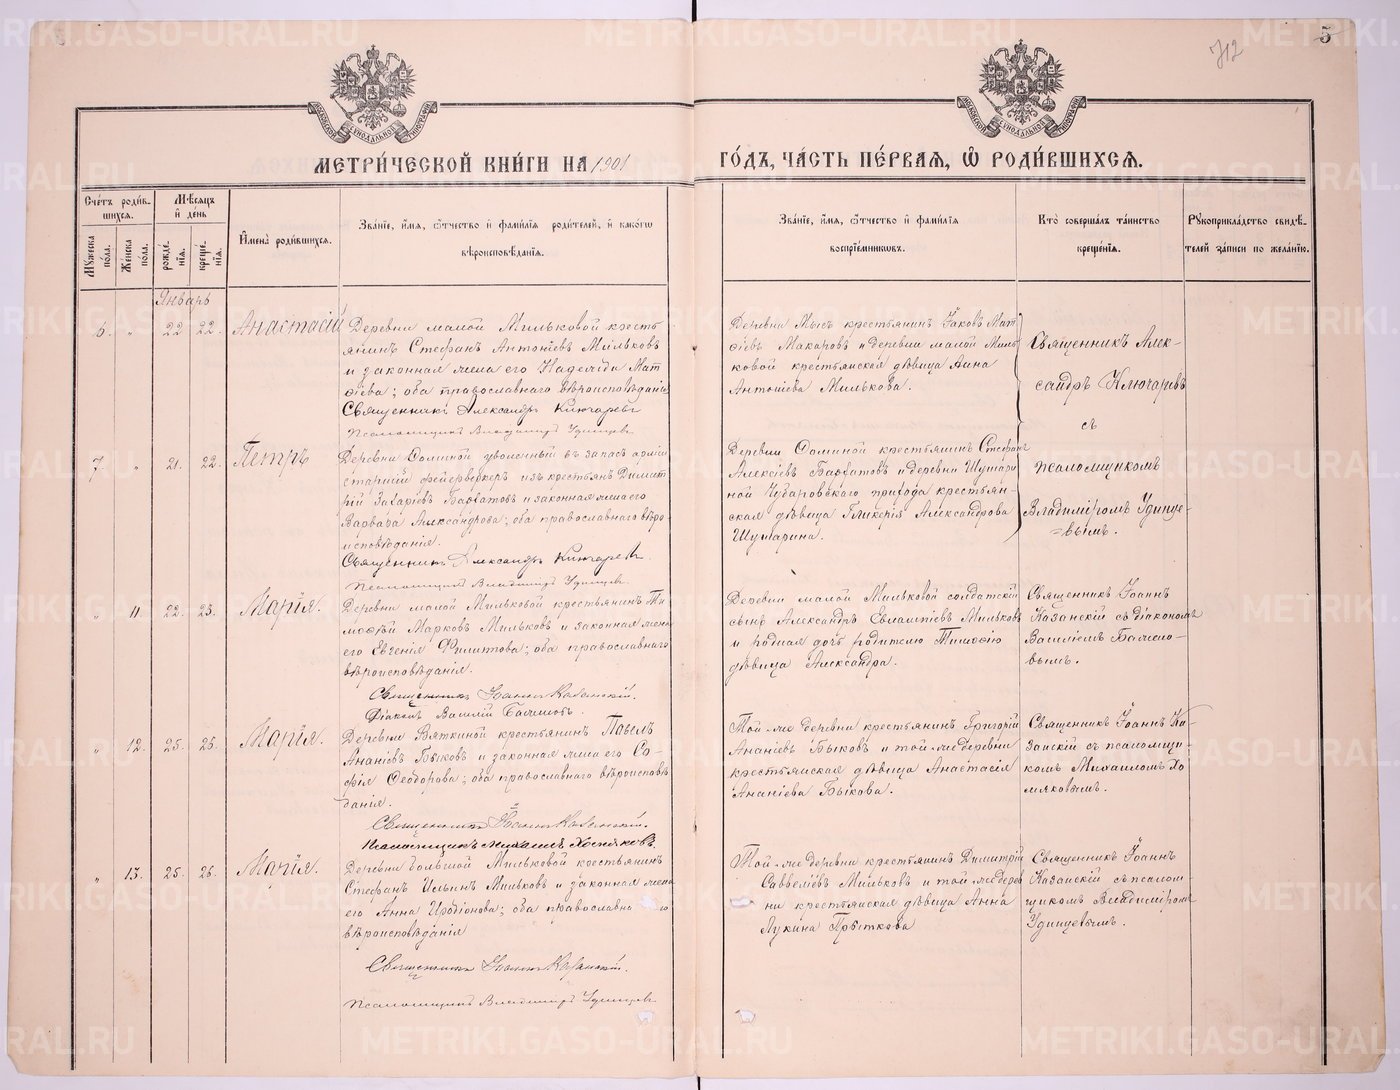 712
5
МЕТРИ́ЧЕСКОЙ КНИ́ГИ НА 1901
ГО́ДЪ, ЧА́СТЬ ПЕ́РВАЯ, Ѿ РОДИ́ВШИХСЯ.
Сче́тъ роди́в-
шихся.
Мѣ́сяцъ
и҆ де́нь
Мꙋжеска по́ла.
Же́нска по́ла.
рожде́нїя.
креще́нїя.
И҆мена̀ роди́вшихся.
Зва́нїе, и҆́мя, ѻ҆́тчество и҆ фами́лїя роди́телей, и҆ како́гѡ
вѣроисповѣ́данїя.
Зва́нїе, и҆́мя, ѻ҆́тчество и҆ фами́лїя
воспрїе́мниковъ.
Кто̀ соверша́лъ та́инство
креще́нїя.
Рꙋкоприкла́дство свидѣ́-
телей за́писи по жела́нїю.
Январь
6. „ 22 22. Анастасій
Деревни малой Мильковой кресть
янинъ Стефанъ Антоніевъ Мильковъ
и законная жена его Надежда Мат
ѳіева; оба православнаго вѣроисповѣданія
Священникъ Александръ Ключаревъ
Псаломщикъ Владимиръ Удинцевъ
Деревни Мысъ крестьянинъ Іаковъ Мат
ѳіевъ Макаровъ и деревни малой Миль
ковой крестьянская дѣвица Анна
Антоніева Милькова.
Священникъ Алек-
сандръ Ключаревъ
съ
псаломщикомъ
Владиміромъ Удинце-
=вымъ.
7 „ 21. 22. Петръ
Деревни Соминой уволенный въ запасъ арміи
старшій фейерверкеръ изъ крестьянъ Димит
рій Захаріевъ Бархатовъ и законная жена его
Варвара Александрова; оба православнаго вѣро-
исповѣданія.
Священникъ Александръ Ключаревъ.
Псаломщикъ Владимиръ Удинцевъ
Деревни Соминой крестьянинъ Стефанъ
Алексіевъ Бархатовъ и деревни Шушари
ной Чубаровскаго прихода крестьян-
ская дѣвица Гликерія Александрова
Шушарина.
„ 11 22. 23. Марія.
Деревни малой Мильковой крестьянинъ Ти
моѳей Марковъ Мильковъ и законная жена
его Евгенія Филиппова; оба православнаго
вѣроисповѣданія.
Священникъ Іоаннъ Казанскій.
Діаконъ Василій
Деревни малой Мильковой солдатскій
сынъ Александръ Евлампіевъ Мильковъ
и родная дочь родителю Тимоѳею
дѣвица Александра.
Священникъ Іоаннъ
Казанскій съ діакономъ
Василіемъ
вымъ.
„ 12. 25. 25. Марія.
Деревни Вяткиной крестьянинъ Павелъ
Ананіевъ Быковъ и законная жена его Со-
фія Ѳеодорова; оба православнаго вѣроисповѣ
данія.
Священникъ Іоаннъ Казанскій.
Псаломщикъ Михаилъ Хомяковъ.
Той-же деревни крестьянинъ Григорій
Ананіевъ Быковъ и той-же деревни
крестьянская дѣвица Анастасія
Ананіева Быкова.
Священникъ Іоаннъ Ка-
занскій съ псаломщи-
комъ Михаиломъ Хо
мяковымъ.
„ 13. 25. 26. Марія.
Деревни большой Мильковой крестьянинъ
Стефанъ Ильинъ Мильковъ и законная жена
его Анна Иродіонова; оба православнаго
вѣроисповѣданія
Священникъ Іоаннъ Казанскій.
Псаломщикъ Владимиръ Удинцевъ
Той-же деревни крестьянинъ Димитрій
Саввеліевъ Мильковъ и той-же дерев
ни крестьянская дѣвица Анна
Лукина Прыткова
Священникъ Іоаннъ
Казанскій съ псалом-
щикомъ Владиміромъ
Удинцевымъ.
METRIKI.GASO-URAL.RU